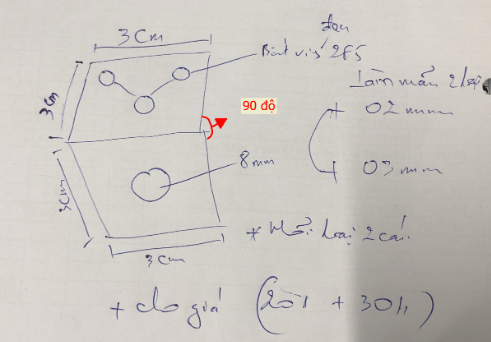 3cm
đầu
Bắt vít 285
Làm mẫu 2 loại
3cm
90 độ
+ 02 mm
8mm
+ 03 mm
3cm
3cm
+ Mỗi loại 2 cái.
+ cho giá (20h + 30h)